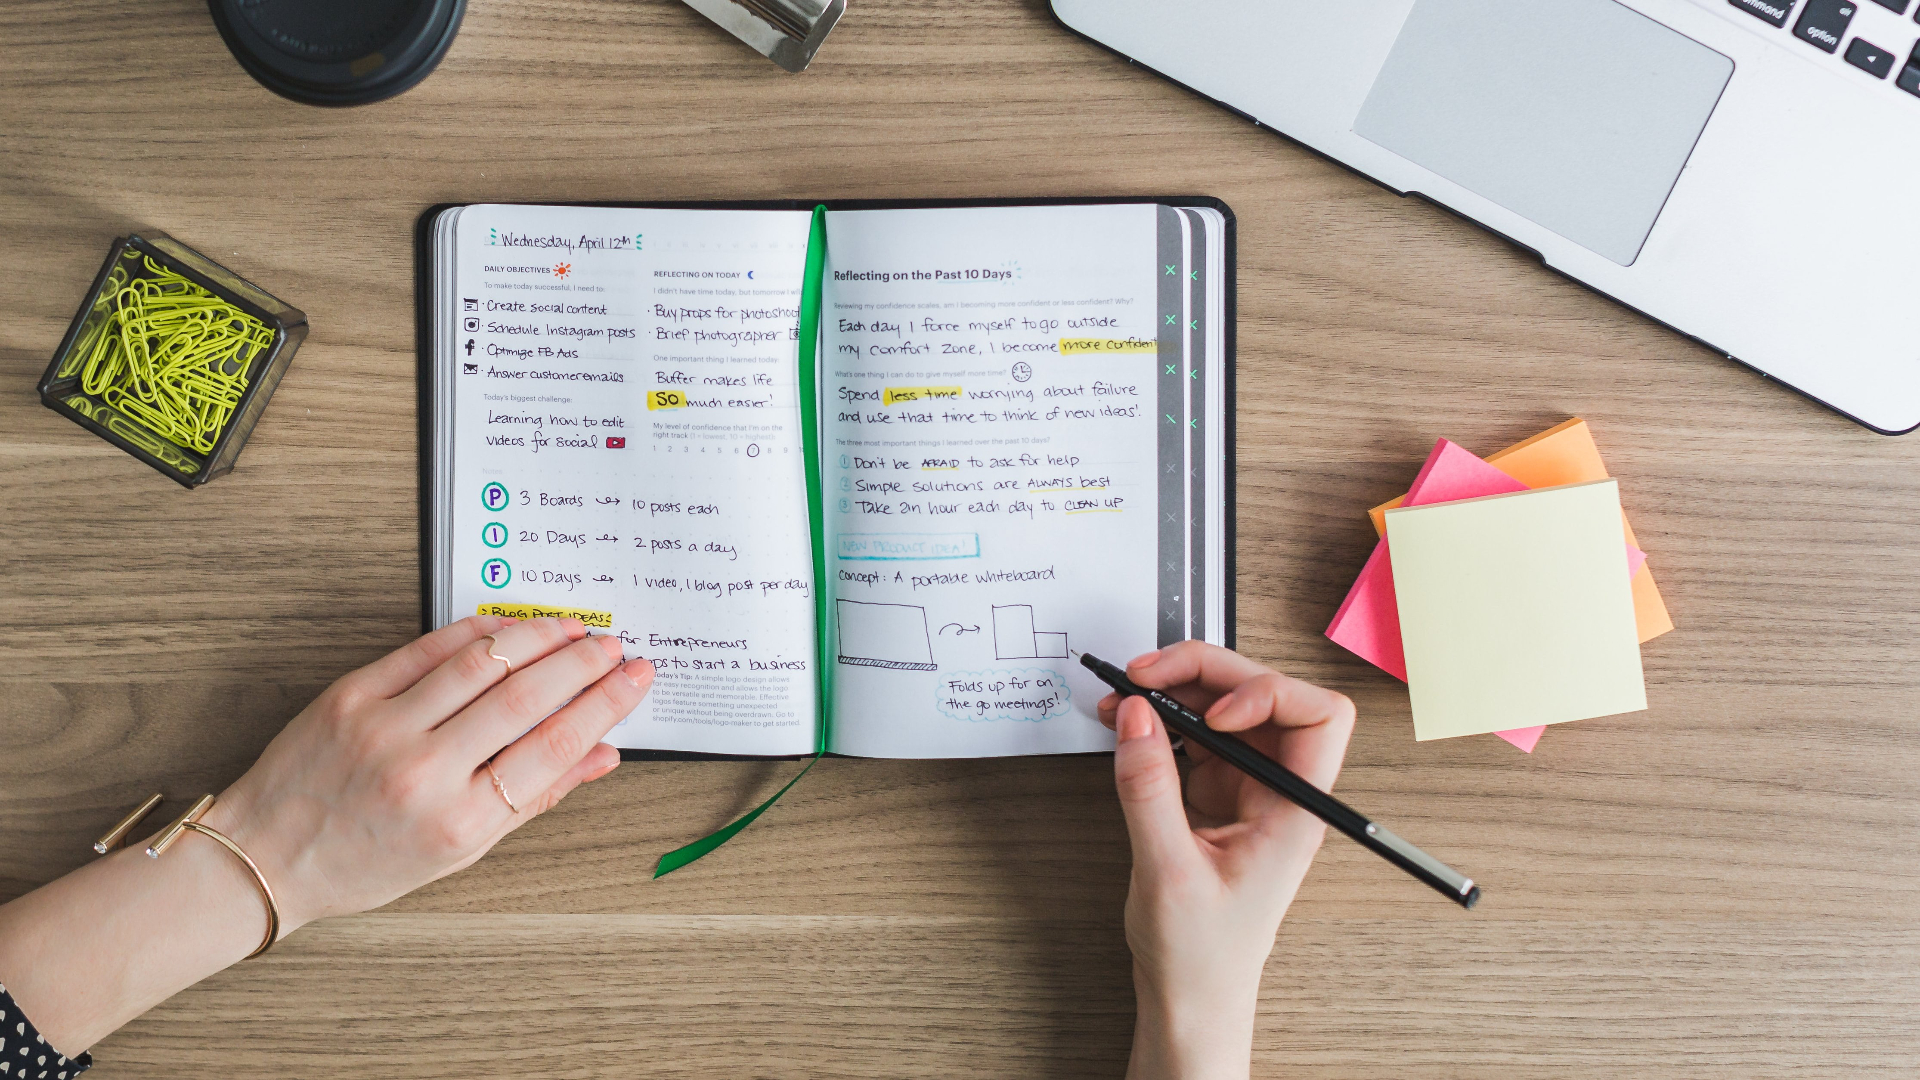 Wednesday, April 12th
DAILY OBJECTIVES
To make today successful, I need to:
· Create social content
· Schedule Instagram posts
· Optimize FB Ads
· Answer customer emails
Today's biggest challenge:
Learning how to edit
videos for social
REFLECTING ON TODAY
I didn't have time today, but tomorrow I will
· Buy props for photoshoot
· Brief photographer
One important thing I learned today:
Buffer makes life
SO much easier!
My level of confidence that I'm on the
right track (1 = lowest, 10 = highest):
1 2 3 4 5 6 7 8 9
Notes
P 3 Boards → 10 posts each
I 20 Days → 2 posts a day
F 10 Days → 1 video, 1 blog post per day
BLOG POST IDEAS:
for Entrepreneurs
to start a business
Today's Tip: A simple logo design allows
for easy recognition and allows the logo
to be versatile and memorable. Effective
logos feature something unexpected
or unique without being overdrawn. Go to
shopify.com/tools/logo-maker to get started
Reflecting on the Past 10 Days
Reviewing my confidence scales, am I becoming more confident or less confident? Why?
Each day I force myself to go outside
my comfort zone, I become more confident
What's one thing I can do to give myself more time?
Spend less time worrying about failure
and use that time to think of new ideas!
The three most important things I learned over the past 10 days?
1 Don't be AFRAID to ask for help
2 Simple solutions are ALWAYS best
3 Take an hour each day to CLEAN UP
NEW PRODUCT IDEA!
Concept: A portable whiteboard
Folds up for on
the go meetings!
command
alt
option